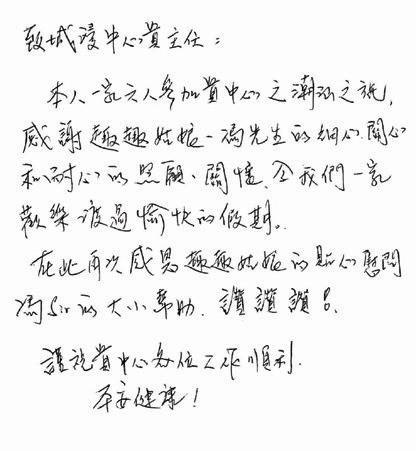 致城浸中心黃主任：
本人一家六人參加貴中心之潮汕之旅,
感謝趣趣姑娘、馮先生的細心、關心
和耐心的照顧、關懷,令我們一家
歡樂渡過愉快的假期。
在此再次感恩趣趣姑娘的貼心慰問
馮Sir的大小幫助. 讚讚讚!
謹祝貴中心各位工作順利.
平安健康!